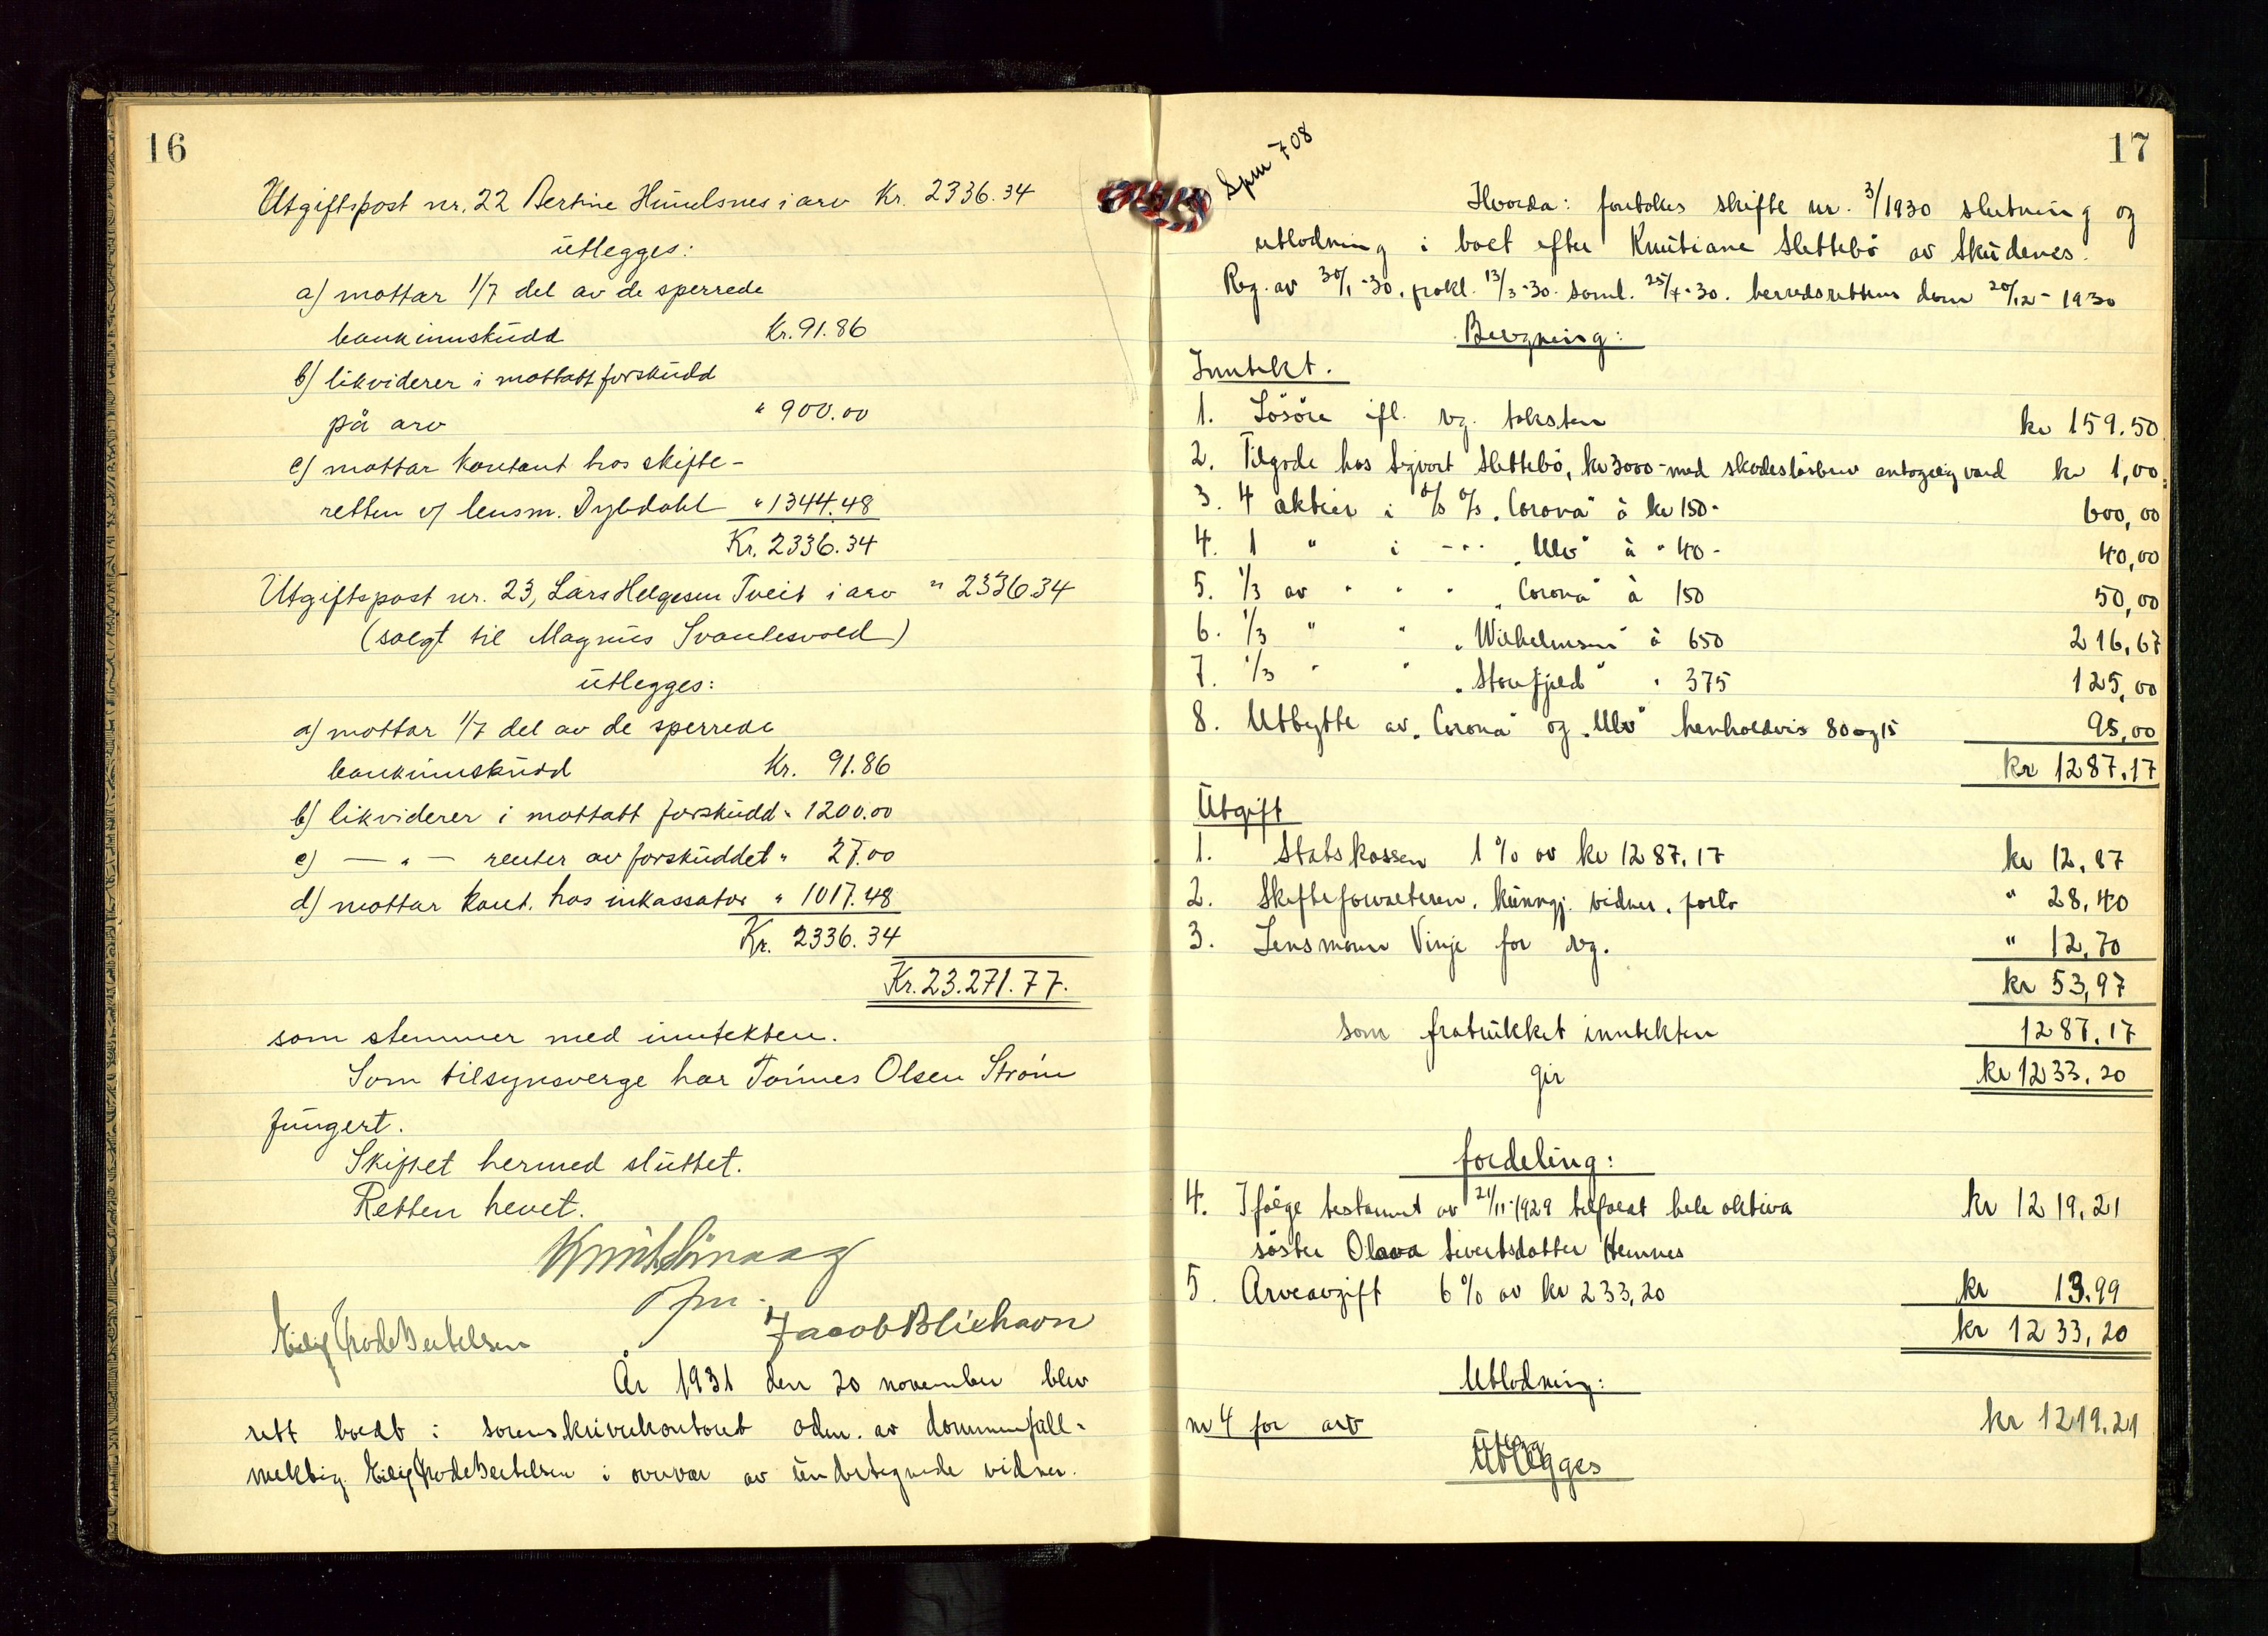 16
Utgiftspost nr. 22 Bertine Hinulsnes i arv Kr. 2336.34
utlegges:
a) mottar 1/7 del av de sperrede
bankinnskudd Kr. 91.86
b) likviderer i mottatt forskudd
på arv " 900.00
c) mottar kontant hos skifte-
retten v/ lensm. Dybdahl " 1344.48
Kr. 2336.34
Utgiftspost nr. 23, Lars Helgesen Tveit i arv " 2336.34
(solgt til Magnus Svantesvold)
utlegges:
a) mottar 1/7 del av de sperrede
bankinnskudd Kr. 91.86
b) likviderer i mottatt forskudd " 1200.00
c) — " — renter av forskuddet " 27.00
d) mottar kont. hos inkassator " 1017.48
Kr. 2336.34
Kr. 23.271.77.
som stemmer med inntekten.
Som tilsynsverge har Tønnes Olsen Strøm
fungert.
Skiftet hermed sluttet.
Retten hevet.
Eilif Grode Bertelsen Jacob Bliehavn
År 1931 den 20 november blev
rett holdt i sorenskriverkontoret adm. av dommerfull-
mektig Eilif Grode Bertelsen i overvær av undertegnede vidner.
17
Spm 708
Hvorda: foretokes skifte nr. 3/1930 slutning og
utlodning i boet efter Knutiane Slettebø av Skudenes.
Reg. av 30/1-30, prokl. 13/3-30. saml. 25/4-30. herredsrettens dom 20/12-1930
Beregning:
Inntekt.
1. Løsøre ifl. reg. taksten kr 159.50
2. Tilgode hos Sigvart Slettebø, kr 3000- med skadesløsbrev antagelig verd kr 1,00
3. 4 aktier i A/S D/S „Corona" à kr 150- 600,00
4. 1 " i - " - „Ulv" à " 40- 40,00
5. 1/3 av " " " „Corona" à 150 50,00
6. 1/3 " " „Wilhelmsen" à 650 216,67
7. 1/3 " " „Storefjeld" " 375 125,00
8. Utbytte av „Corona" og „Ulv" henholdsvis 80 og 15 95,00
kr 1287.17
Utgift
1. Statskassen 1% av kr 1287.17 kr 12.87
2. Skifteforvalteren, kunngj. vidner, porto " 28,40
3. Lensmann Vinje for reg. " 12,70
kr 53,97
som fratrukket inntekten 1287.17
gir kr 1233.20
Fordeling:
4. Ifølge testament av 21/11-1929 tilfalt hele aktiva kr 1219.21
søster Olava Sivertsdatter Hemnes
5. Arveavgift 6% av kr 233,20 kr 13.99
kr 1233,20
Utlodning:
nr 4 for arv kr 1219.21
Utlegges